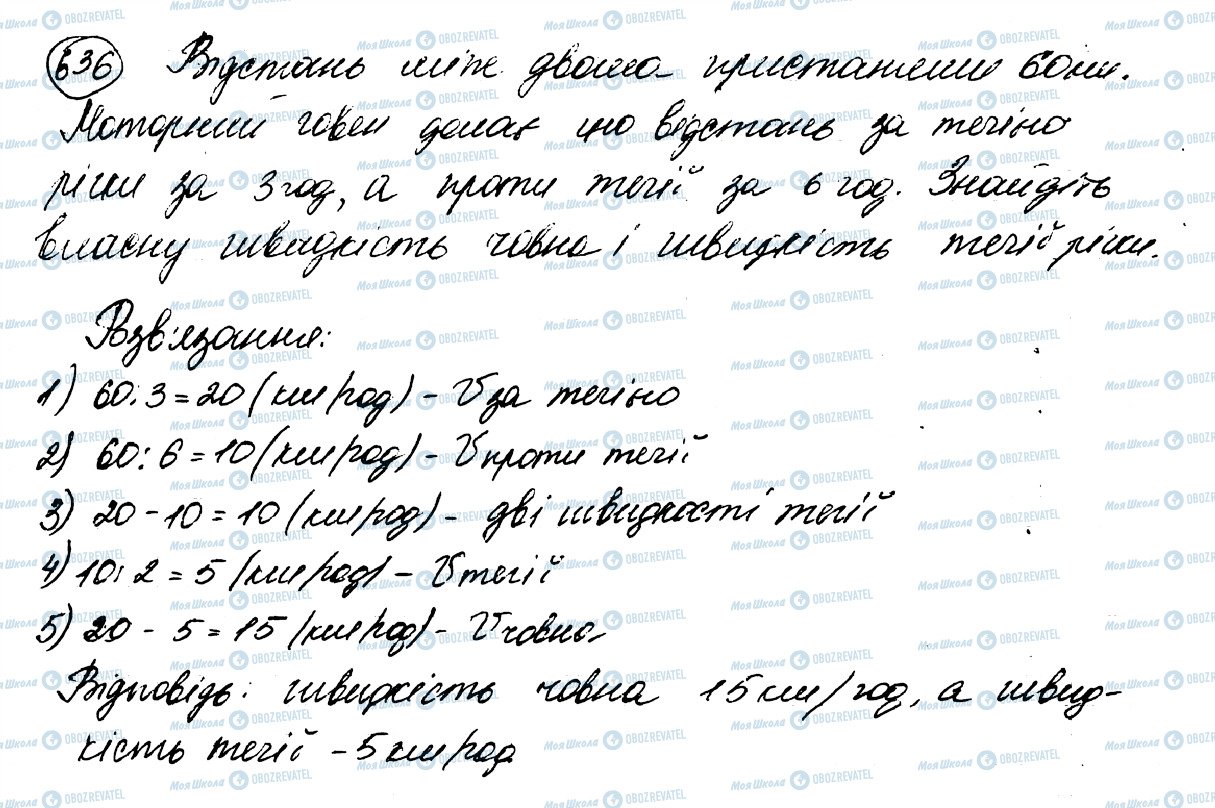 636 Відстань між двома пристанями 60 км.
Моторний човен долає цю відстань за течією
ріки за 3 год, а проти течії за 6 год. Знайдіть
власну швидкість човна і швидкість течії ріки.
Розв'язання:
1) 60 : 3 = 20 (км/год) - V за течією
2) 60 : 6 = 10 (км/год) - V проти течії
3) 20 - 10 = 10 (км/год) - дві швидкості течії
4) 10 : 2 = 5 (км/год) - V течії
5) 20 - 5 = 15 (км/год) - V човна.
Відповідь: швидкість човна 15 км/год, а швид-
кість течії - 5 км/год